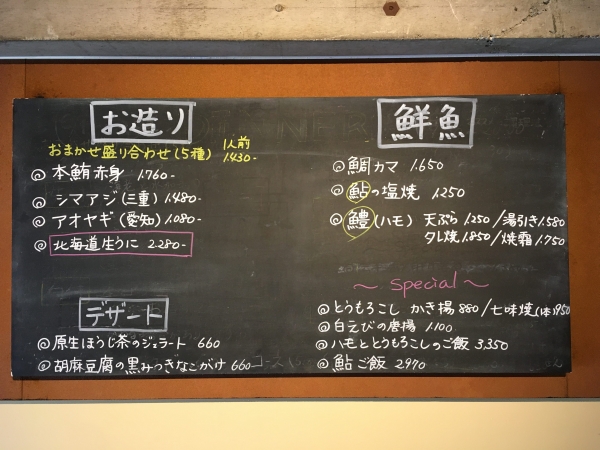 お造り
おまかせ盛り合わせ(5種) 1人前 1430-
◎本鮪赤身 1.760-
◎シマアジ(三重) 1.480-
◎アオヤギ(愛知) 1.080-
◎北海道生うに 2.280-
デザート
◎原生ほうじ茶のジェラート 660
◎胡麻豆腐の黒みつきなこがけ 660
鮮魚
◎鯛カマ 1.650
◎鮎の塩焼 1250
◎鱧(ハモ) 天ぷら 1.250/湯引き1.580
タレ焼1.850/焼霜1.750
〜 Special 〜
◎とうもろこし かき揚 880/七味焼(1本)950
◎白えびの唐揚 1.100
◎ハモととうもろこしのご飯 3,350
◎鮎ご飯 2970